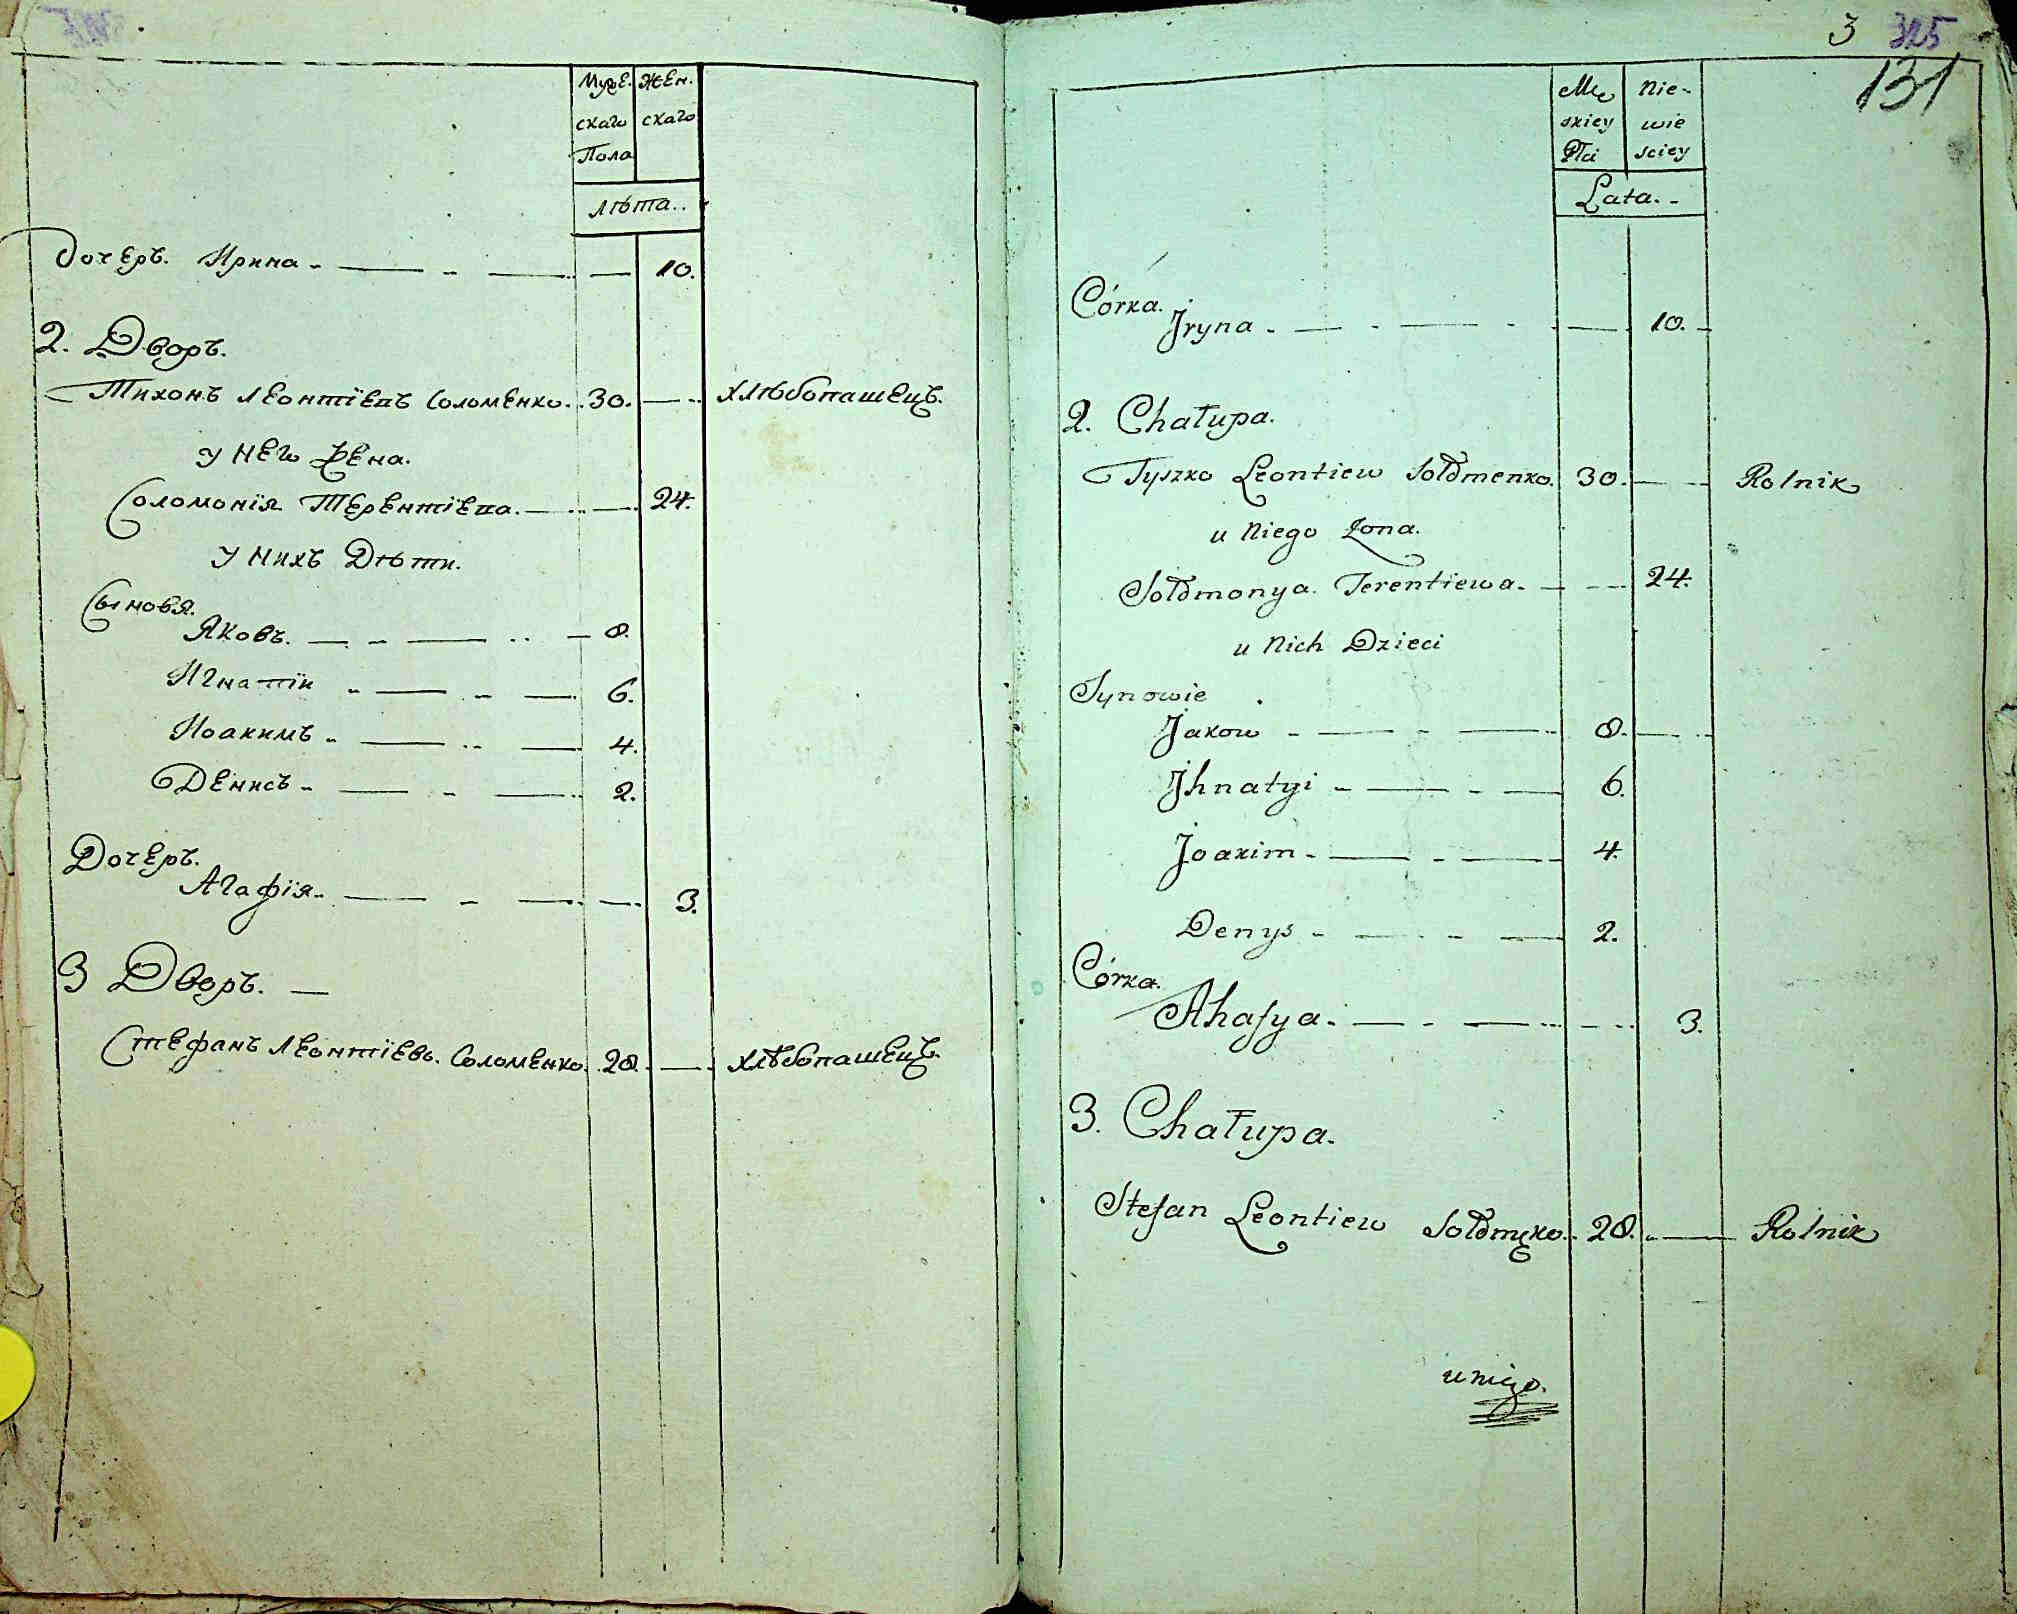 Муже. Жен.
скаго скаго
Пола
лѣта..
Дочерь. Ирина 10.
2. Дворъ.
Тихонъ Леонтїевъ Соломенко. 30. хлѣбопашецъ.
у него жена.
Соломонїя Терентїева. 24.
у нихъ Дѣти.
Сыновя.
Яковъ. 8.
Игнатїи 6.
Иоакимъ 4.
Денисъ 2.
Дочерь.
Агафїя 3.
3 Дворъ.
Стефанъ Леонтїевъ. Соломенко 28. хлѣбопашецъ.
3 325
131
Męs Nie-
skiey wie
Płci sciey
Lata.
Córka.
Jryna 10.
2. Chałupa.
Tyszko Leontiew Sołomenko. 30. Rolnik
u Niego Żona.
Sołomonya. Terentiewa. 24.
u Nich Dzieci
Synowie
Jakow 8.
Jhnatyi 6.
Joakim 4.
Denys 2.
Córka.
Ahafya. 3.
3. Chałupa.
Stefan Leontiew Sołomęko. 28. Rolnik
u niego.